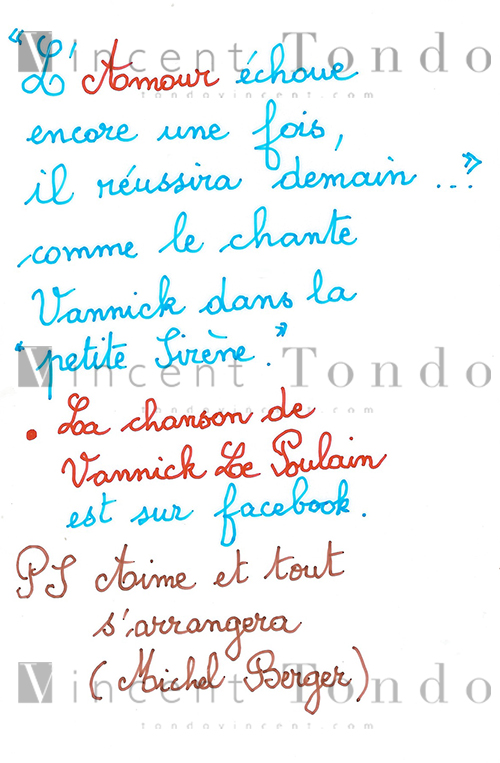 Vincent Tondo
"L'Amour échoue
tondovincent.com
encore une fois,
il réussira demain ..."
comme le chante
Vannick dans la
"petite Sirène."
Vincent Tondo
tondovincent.com
• La chanson de
Vannick Le Poulain
est sur facebook.
PS Aime et tout
s'arrangera
(Michel Berger)
Vincent Tondo
tondovincent.com